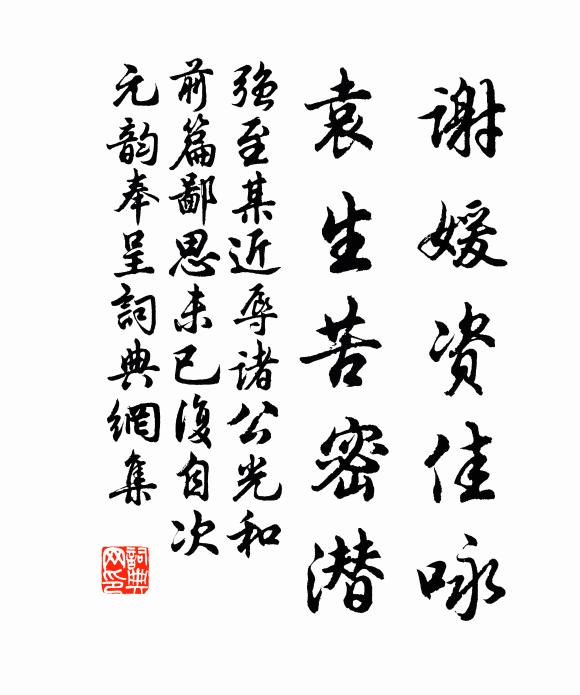 谢媛资佳咏
袁生苦密潜
强至某近辱诸公光和
前篇鄙思未已復自次
元韵奉呈詞典網集
詞典
网印